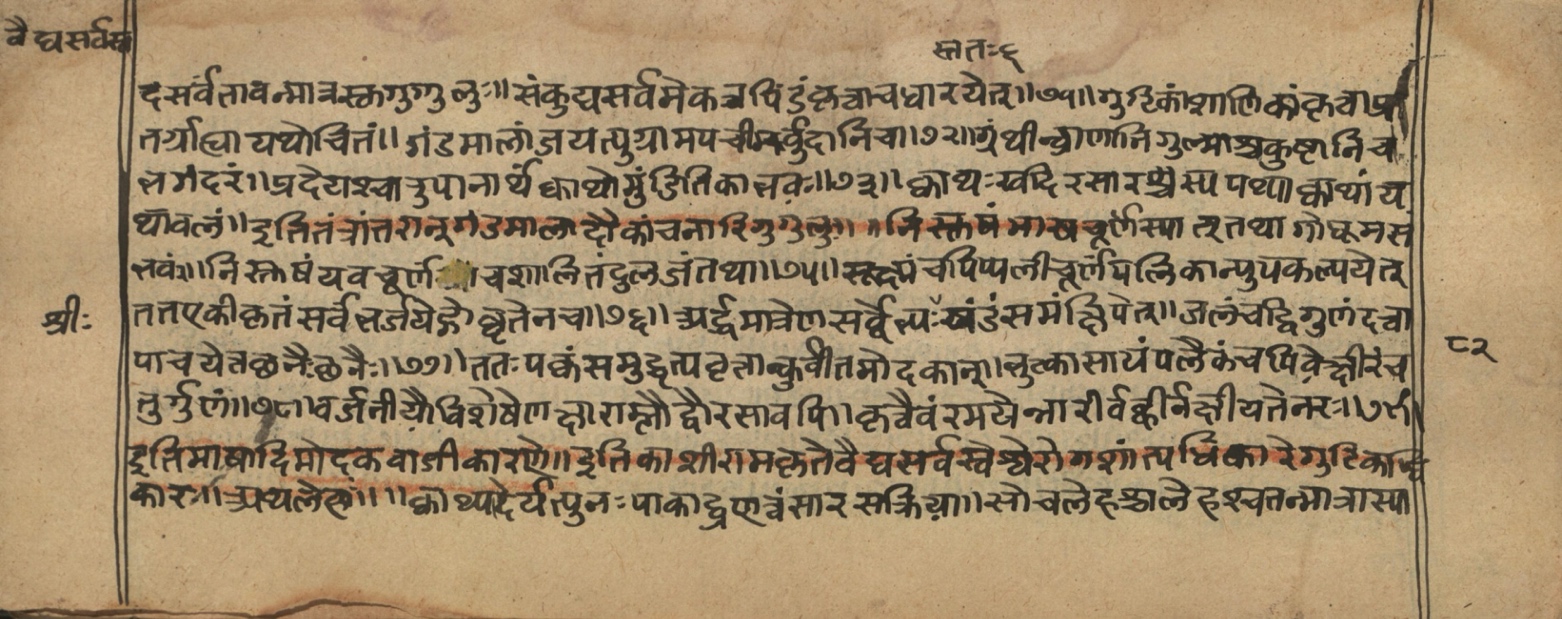 वैद्यसर्वस्व
स्ततः६
दसर्वंतावन्मात्रस्तुगुग्गुलुः॥संकुद्यसर्वमेकत्रपिंडंकृत्वाचधारयेत्॥७१॥गुटिकांशालिकांकृत्वाप्रा
तर्ग्राह्यायथोचितं॥गंडमालांजयत्युग्रामपचीमर्वुदानिच॥७२॥ग्रंथीन्व्राणानिगुल्माश्चकुष्टानिच
भगंदरं॥प्रदेयश्चानुपानार्थंक्वाथोमुंडितिकाभवः॥७३॥क्वाथःखदिरसारश्च पथ्याक्वाथांय
थावलं॥इतितंत्रांतरात्गंडमालादौकांचनारिगुगुलुः॥॥निस्तुषंमाषचूर्णंस्यात्तथागोधूमसं
भवं॥निस्तुषंयवचूर्णं चशालितंदुलजंतथा॥७५॥सूक्ष्मंचपिप्पलीचूर्णंपलिकान्युपकल्पयेत्
ततएकीकृतंसर्वंभर्जयेद्गोघृतेनच॥७६॥अर्द्धमात्रेणसर्वेभ्यःखंडंसमंक्षिपेत्॥जलंचद्विगुणंदत्वा
पाचयेतछनैःछनैः॥७७॥ततःपक्वंसमुद्धृत्यवृत्तान्कुर्वीतमोदकान्॥भुत्कासायंपलैकंचपिवेत्क्षीरंच
तुर्गुणं॥७८॥वर्जनीयौविशेषेणक्षाराम्लौद्वौरसावपि॥कृत्वैवंरमयेन्नारीर्वह्वीर्नक्षीयतेनरः॥७९॥
इतिमाषादिमोदकवाजीकारणे॥इतिकाशीरामकृतेवैद्यसर्वस्वे गुटिका
कारः॥अथलेहः॥॥क्वाथ्यादेर्यत्पुनःपाकाद्घणत्वंसारसक्रिया॥सोचलेहश्चालेहश्चतन्मात्रास्या
श्रीः
८२